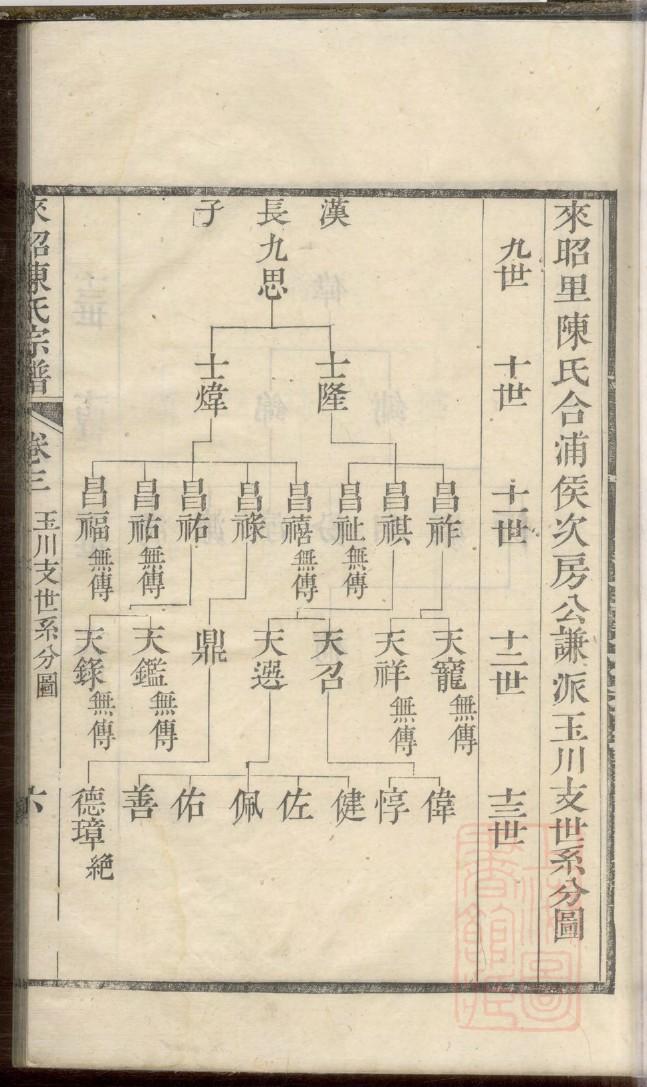 來昭里陳氏合浦侯次房公謙派玉川支世系分圖
九世
十世
十一世
十二世
十三世
漢長子
九思
士隆
士煒
昌祚
昌祺
昌祉 無傳
昌禧 無傳
昌祿
昌祐
昌祜 無傳
昌福 無傳
天寵 無傳
天祥 無傳
天召
天選
鼎
天鑑 無傳
天錄 無傳
偉
惇
健
佐
佩
佑
善
德璋 絶
來昭陳氏宗譜
卷三
玉川支世系分圖
六